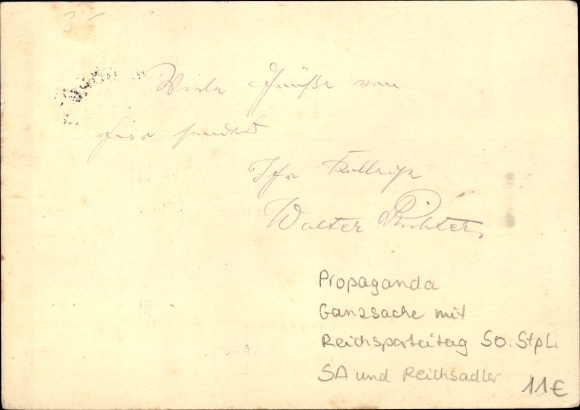 35
Viele Grüße von
hier sendet
Ihr Kollege
Walter Richter.
Propaganda
Ganzsache mit
Reichsparteitag SO. Stpl.
SA und Reichsadler
11€